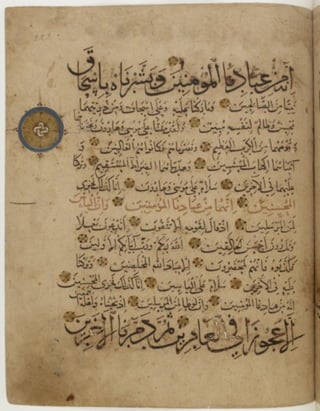 إنه من عبادنا المؤمنين وبشرناه بإسحاق
نبيا من الصالحين وباركنا عليه وعلى إسحاق ومن ذريتهما
محسن وظالم لنفسه مبين ولقد مننا على موسى وهارون ونجينا
هما وقومهما من الكرب العظيم ونصرناهم فكانوا هم الغالبين و
آتيناهما الكتاب المستبين وهديناهما الصراط المستقيم وتركنا
عليهما في الآخرين سلام على موسى وهارون إنا كذلك نجزي
المحسنين إنهما من عبادنا المؤمنين وإن إلياس
لمن المرسلين إذ قال لقومه ألا تتقون أتدعون بعلا
وتذرون أحسن الخالقين الله ربكم ورب آبائكم الأولين
فكذبوه فإنهم لمحضرون إلا عباد الله المخلصين وتركنا
عليه في الآخرين سلام على إل ياسين إنا كذلك نجزي المحسنين
إنه من عبادنا المؤمنين وإن لوطا لمن المرسلين إذ نجيناه وأهله
إلا عجوزا في الغابرين ثم دمرنا الآخرين